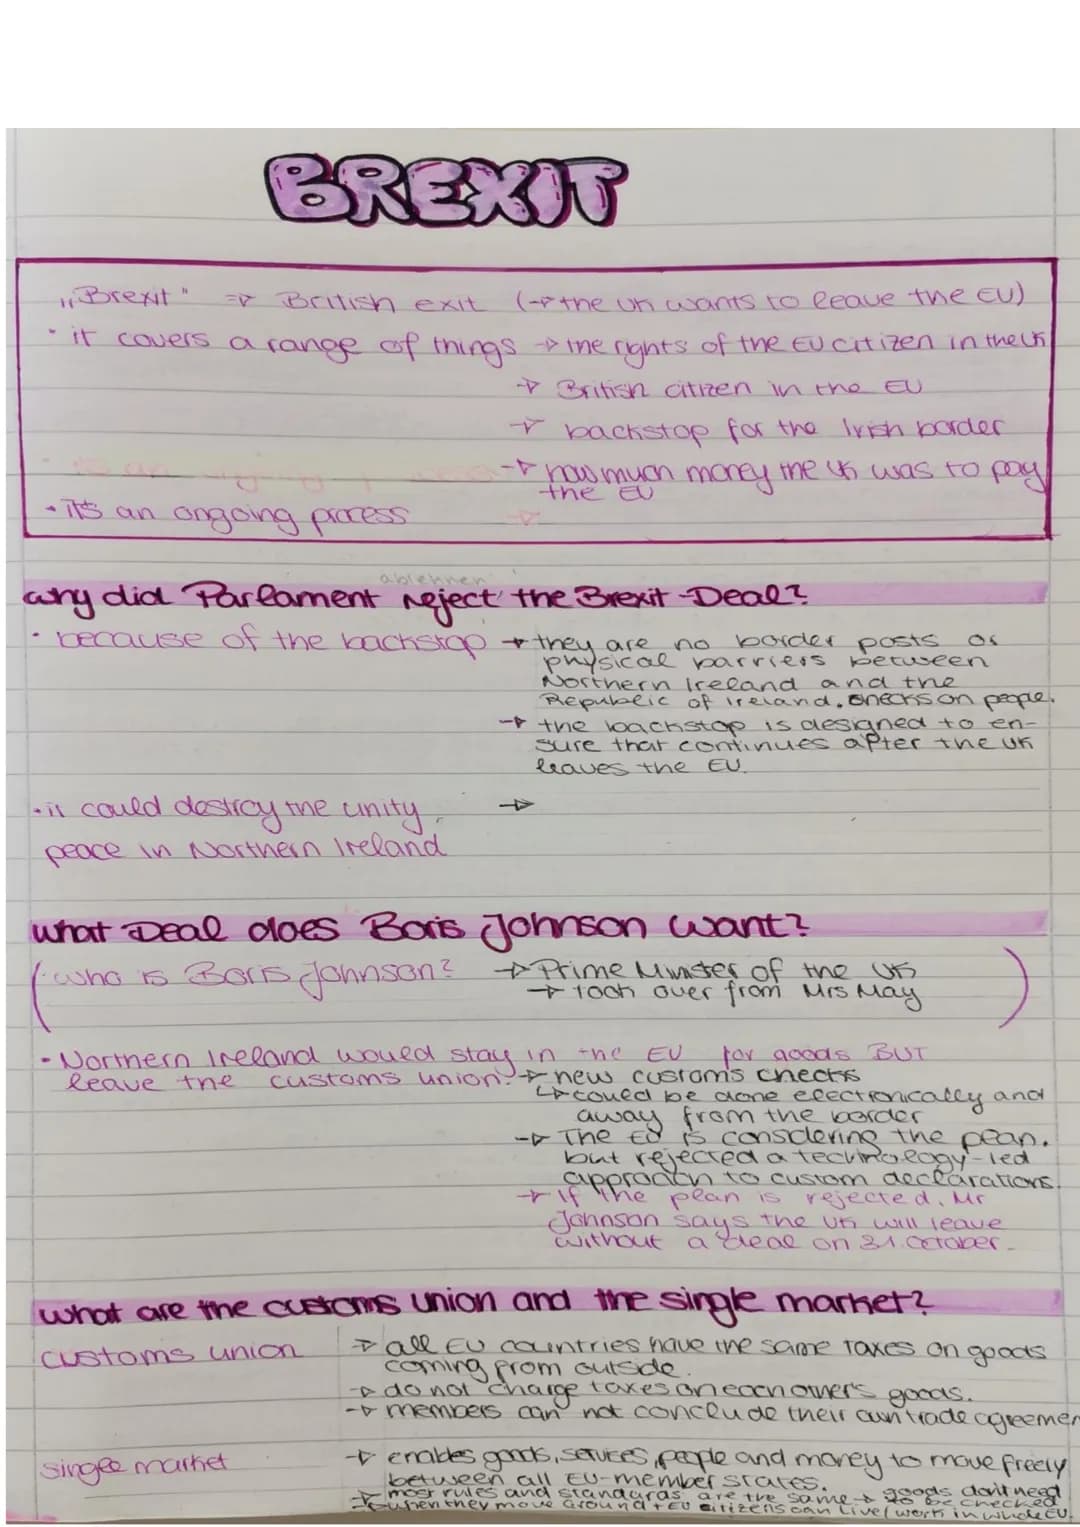 BREXIT
„Brexit" => British exit (→ the UK wants to leave the EU)
• it covers a range of things → the rights of the EU citizen in the UK
→ British citizen in the EU
→ backstop for the Irish border
→ how much money the UK was to pay
the EU
• it's an ongoing process
ablehnen
why did Parlament reject the Brexit-Deal?
• because of the backstop → they are no border posts or
physical barriers between
Northern Ireland and the
Republic of Ireland. checks on people.
→ the backstop is designed to en-
sure that continues after the UK
leaves the EU.
• it could destroy the unity, →
peace in Northern Ireland
what Deal does Boris Johnson want?
(• who is Boris Johnson? → Prime Minister of the UK )
→ took over from Mrs May
• Northern Ireland would stay in the EU for goods BUT
leave the customs union: → new customs checks
↳ could be done electronically and
away from the border
→ The EU is considering the plan.
but rejected a technology-led
approach to custom declarations.
→ If the plan is rejected, Mr
Johnson says the UK will leave
without a deal on 31. October.
what are the customs union and the single market?
customs union → all EU countries have the same taxes on goods
coming from outside.
→ do not charge taxes on each other's goods.
→ members can not conclude their own trade agreemen
single market → enables goods, services, people and money to move freely
between all EU-member states.
→ most rules and standards are the same → goods don't need
to be checked
when they move around + EU citizens can live/work in whole EU.